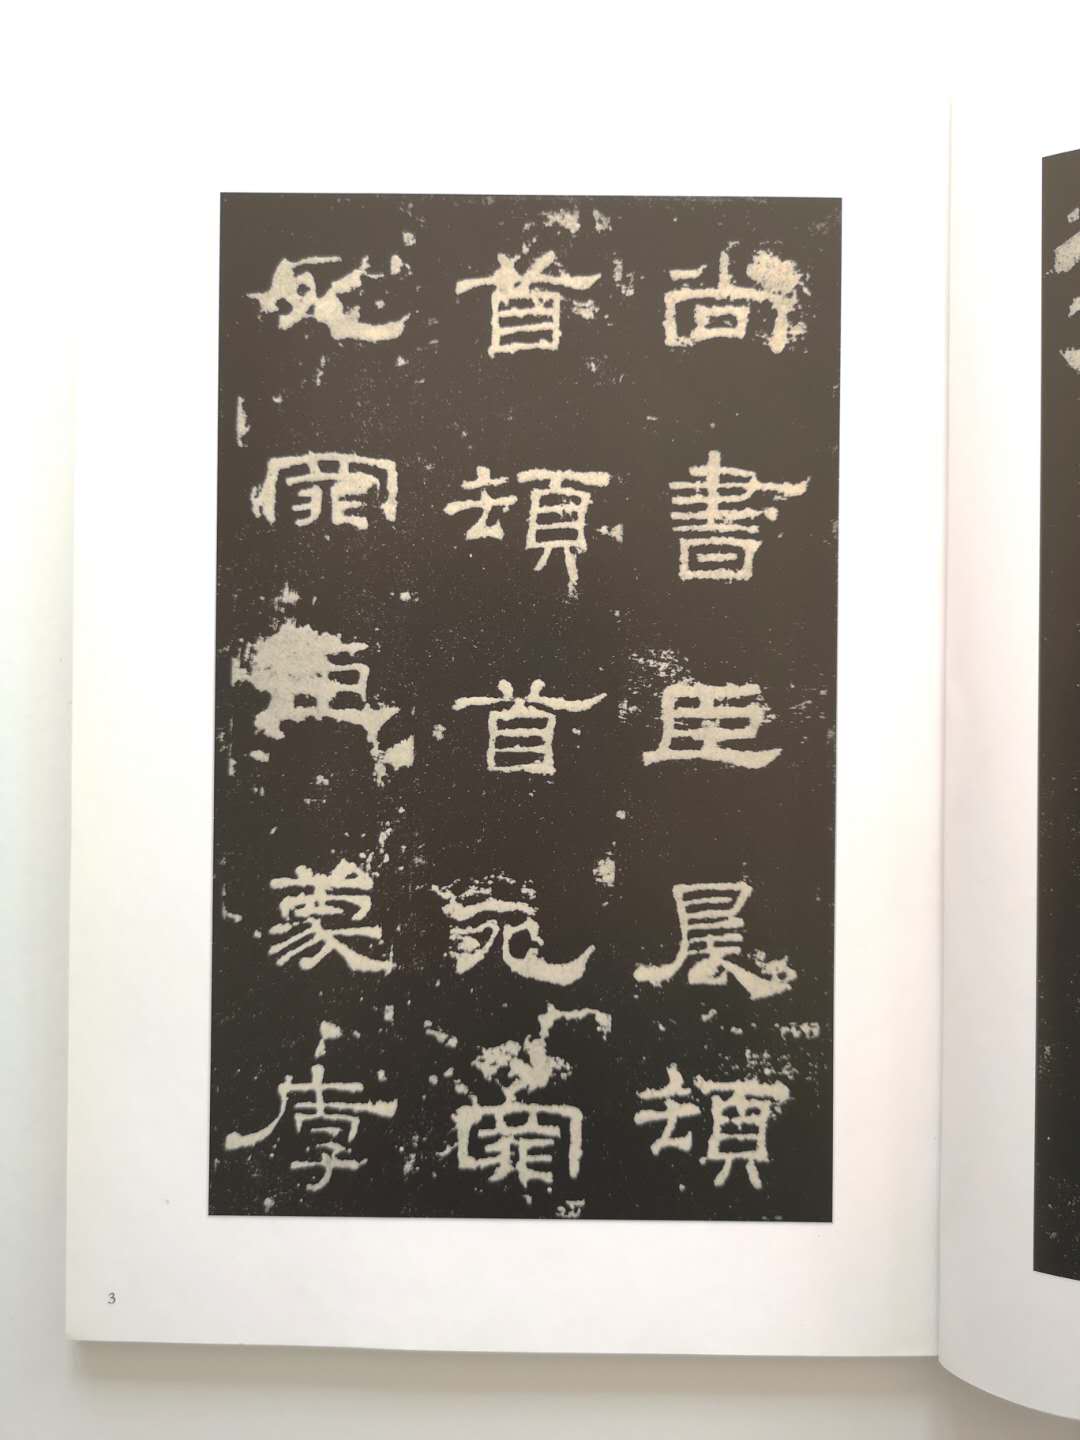 尚書臣晨頓
首頓首死罪
死罪臣蒙厚
3